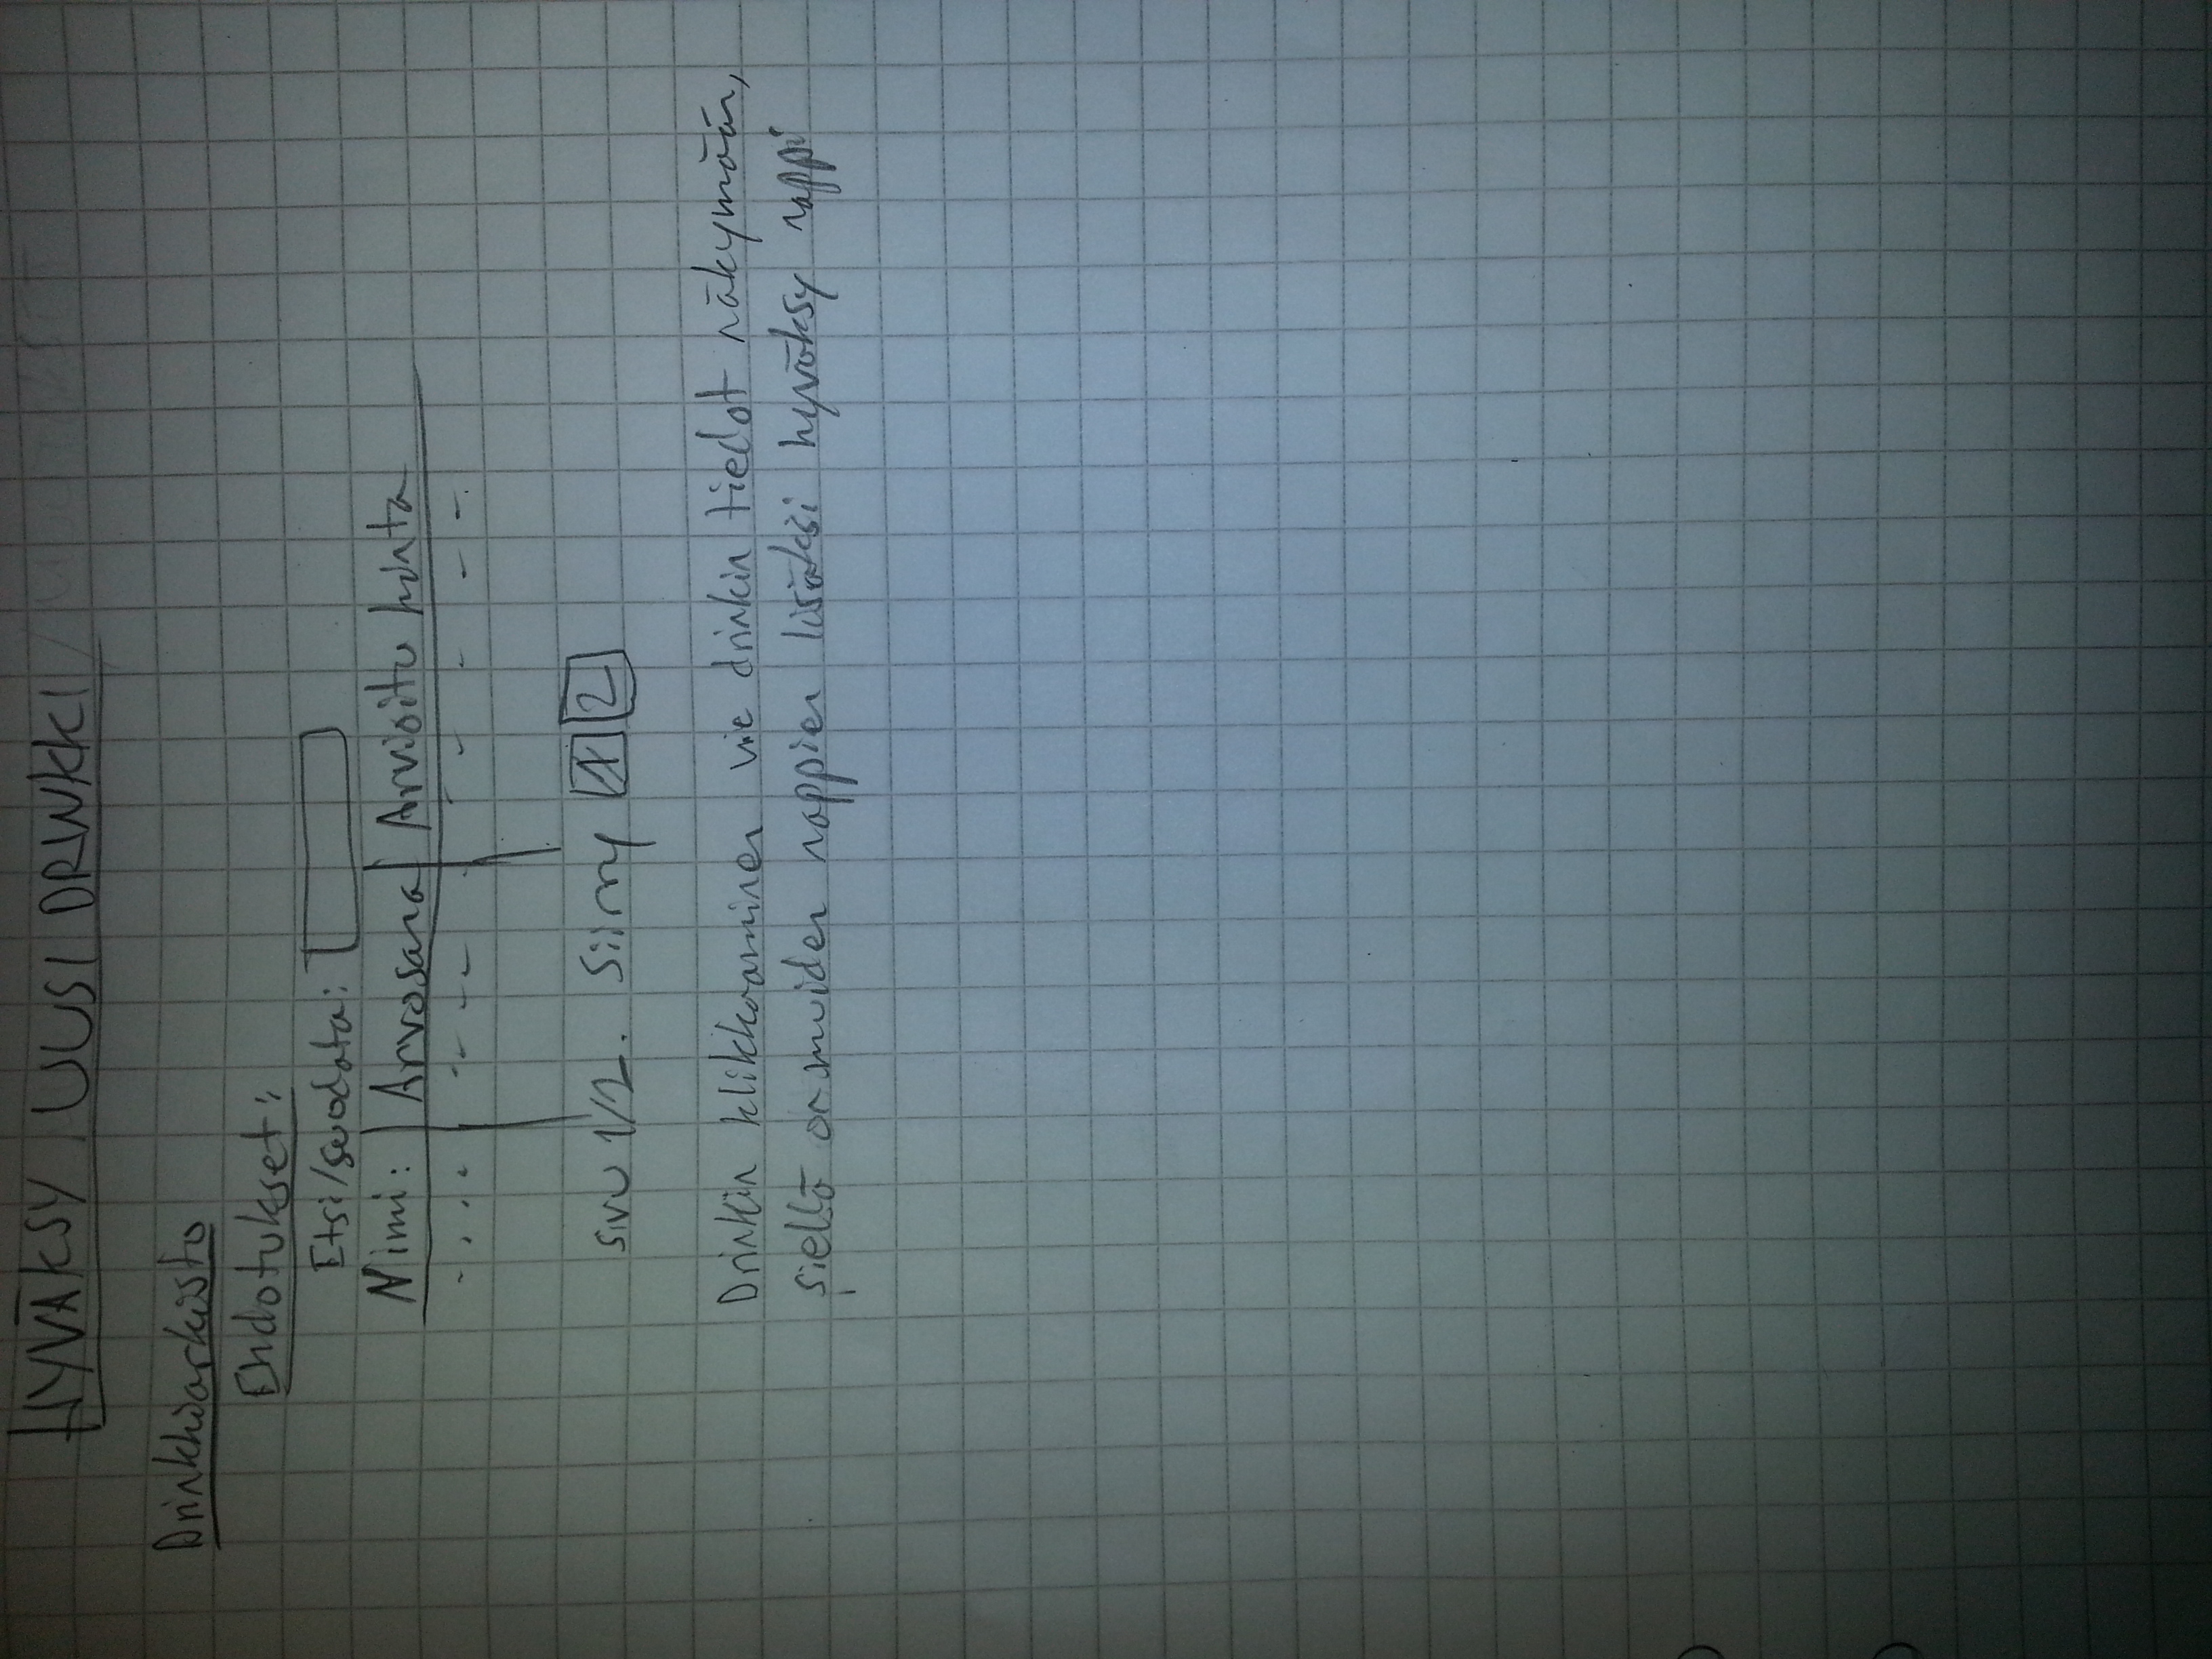 HYVÄKSY UUSI DRINKKI
Drinkkiarkisto
Ehdotukset:
Etsi/suodata:
Nimi: Arvosana Arvioitu hinta
sivu 1/2. Siirry 1 2
Drinkin klikkaaminen vie drinkin tiedot näkymään,
siellä on muiden nappien lisäksi hyväksy nappi